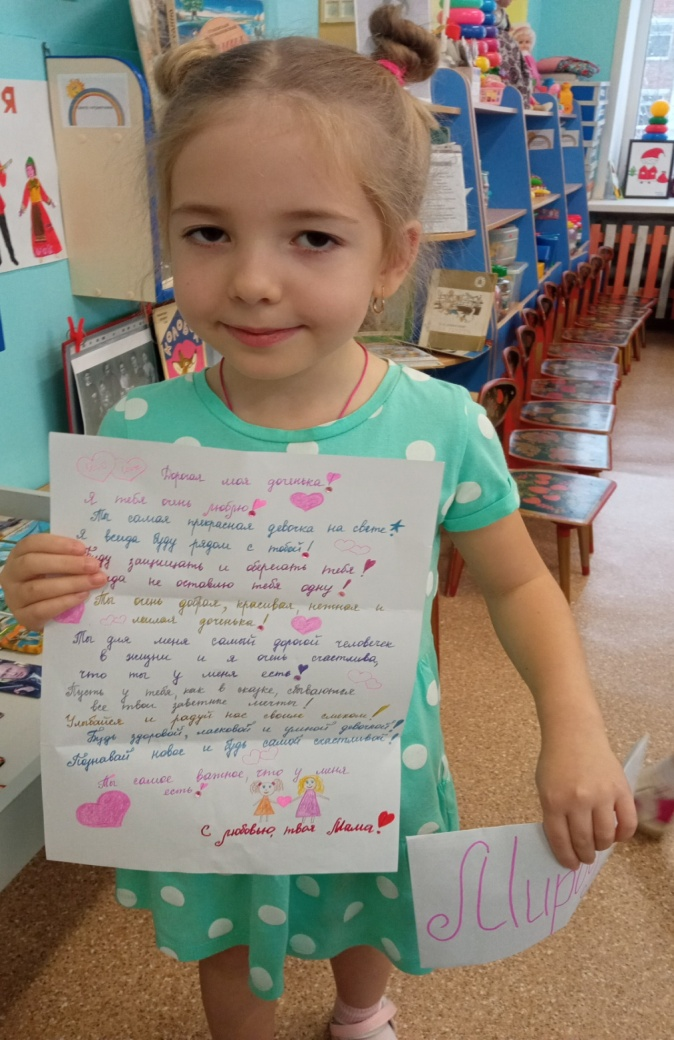 Дорогая моя доченька!
Я тебя очень люблю!
Ты самая прекрасная девочка на свете!
Я всегда буду рядом с тобой!
Буду защищать и оберегать тебя!
не оставлю тебя одну!
Ты очень добрая, красивая, нежная и
милая доченька!
Ты для меня самый дорогой человечек
в жизни и я очень счастлива,
что ты у меня есть!
Пусть у тебя, как в сказке, сбываются
все твои заветные мечты!
Улыбайся и радуй нас своим смехом!
Будь здоровой, ласковой и умной девочкой!
Познавай новое и будь самой счастливой!
Ты самое важное, что у меня
есть!
С любовью, твоя Мама!
Мира
Я